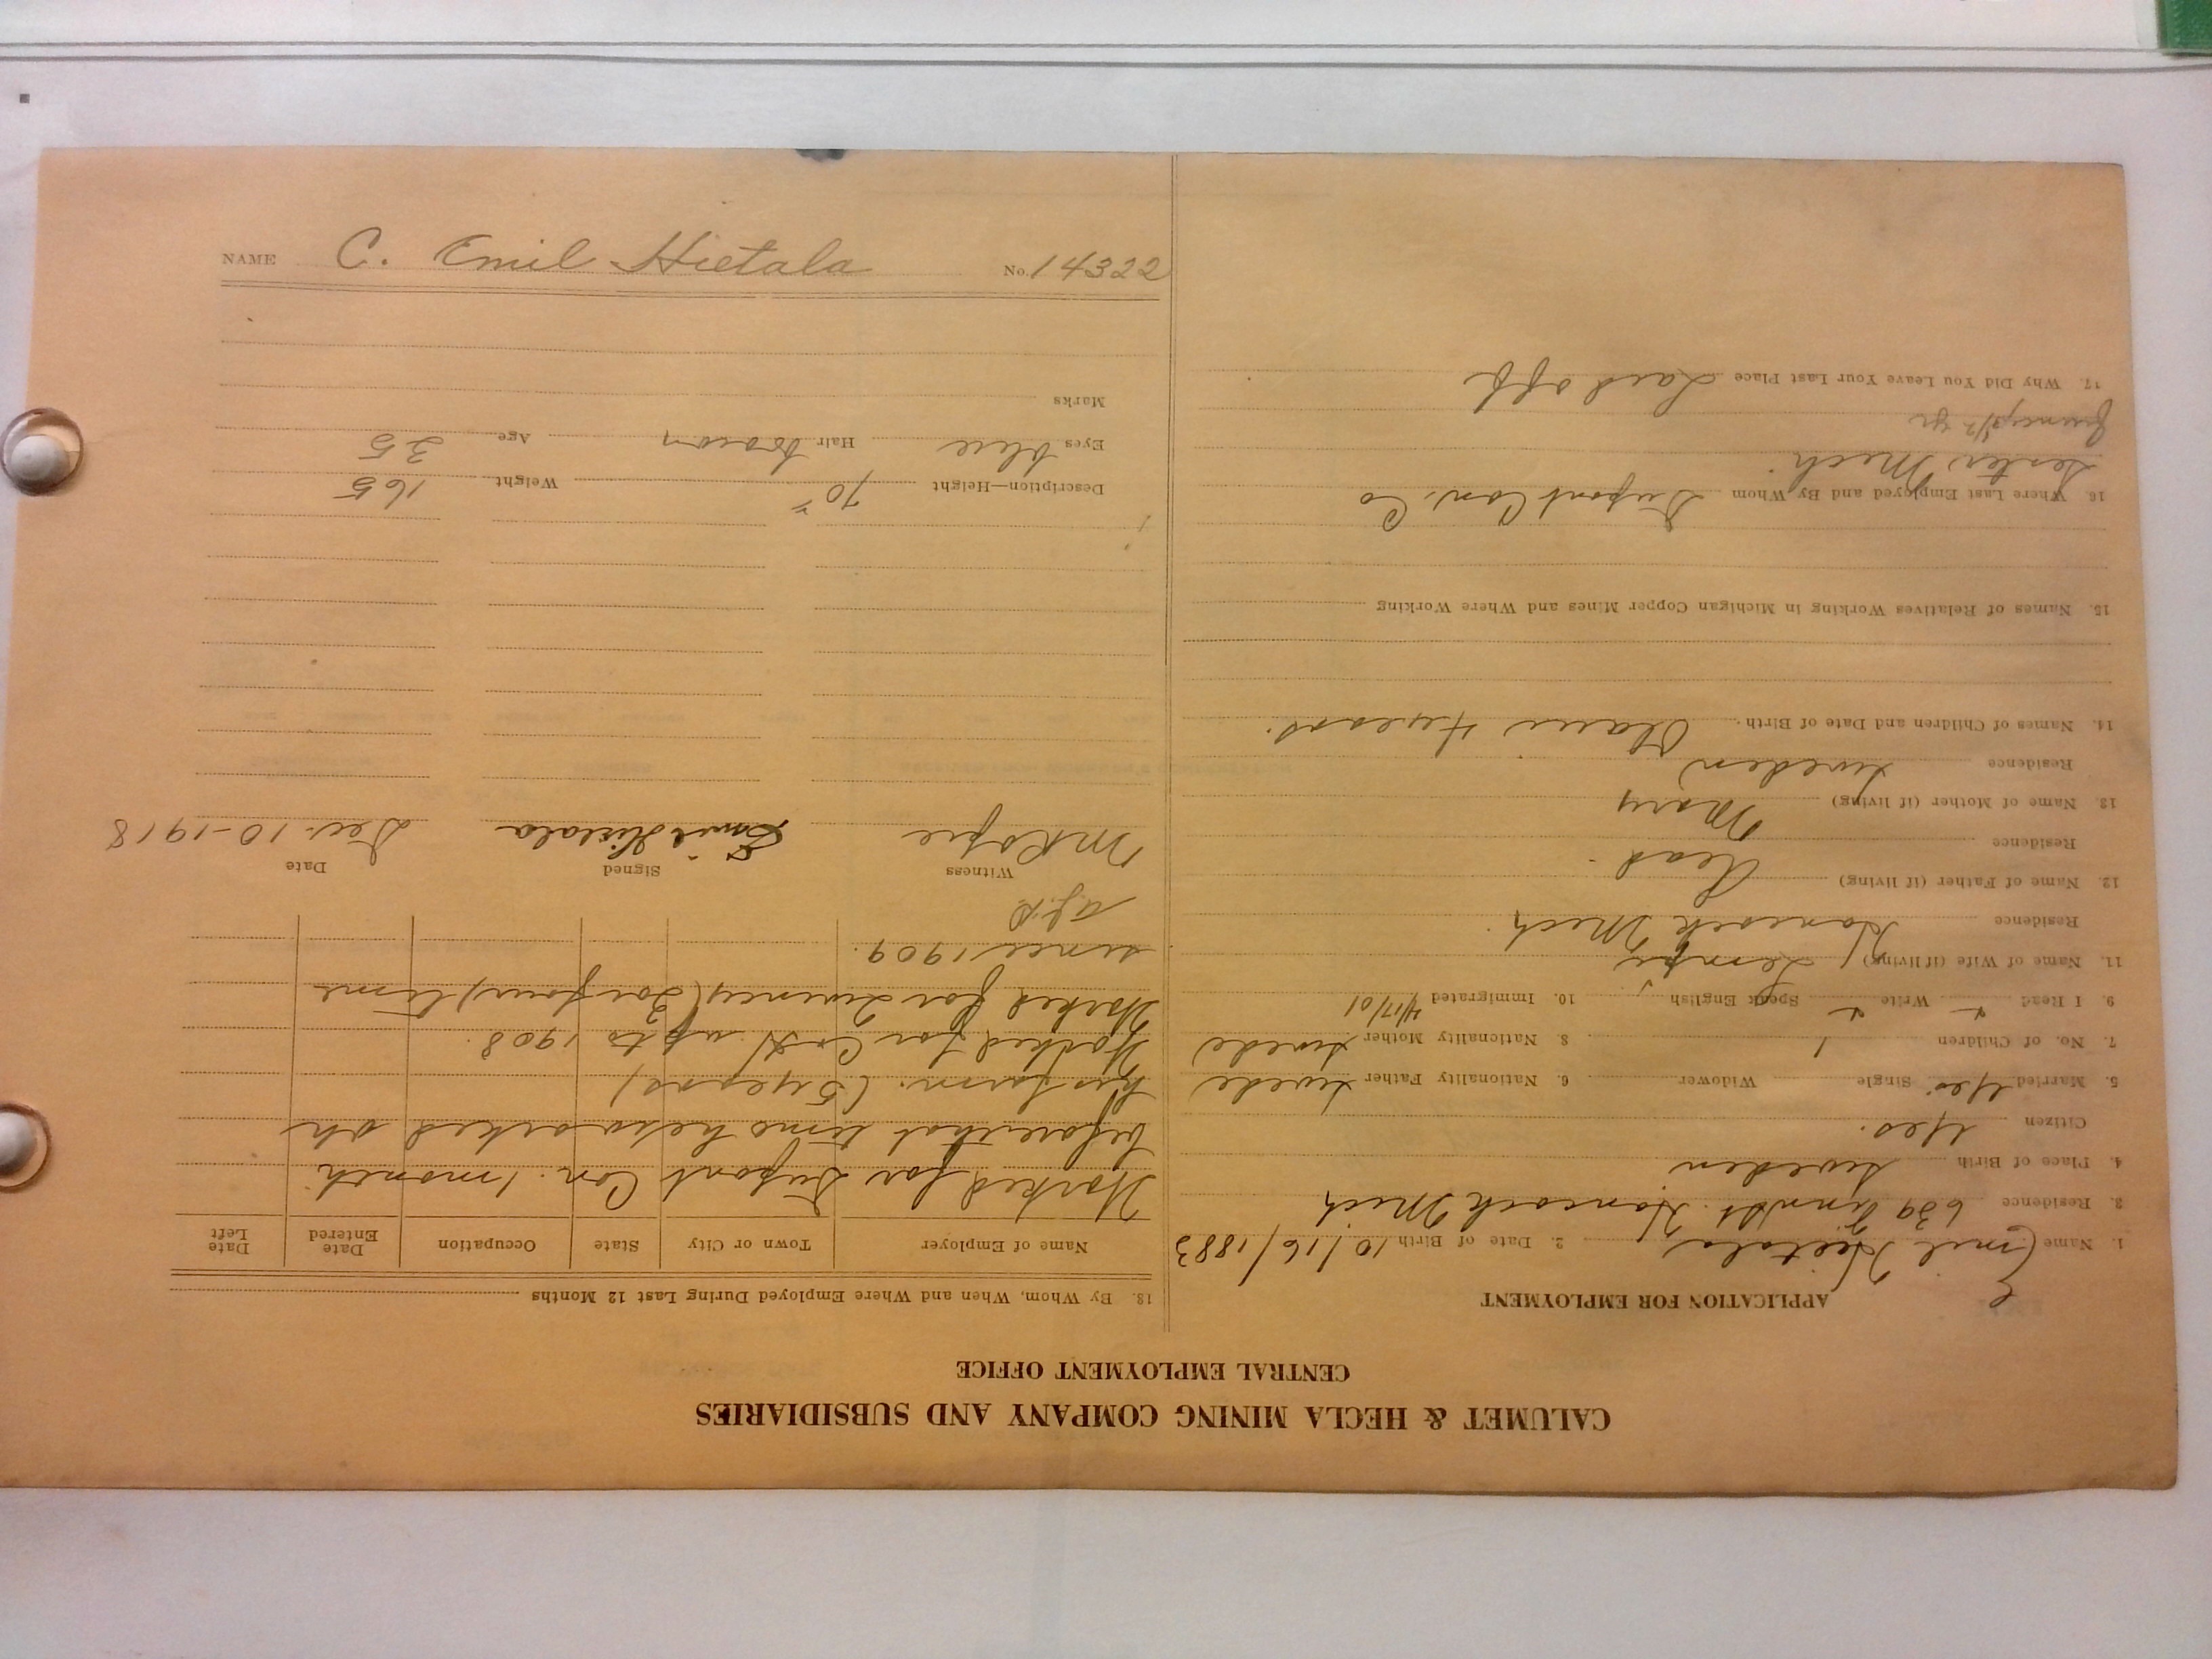 NAME C. Emil Hietala No. 14322
CALUMET & HECLA MINING COMPANY AND SUBSIDIARIES
CENTRAL EMPLOYMENT OFFICE
APPLICATION FOR EMPLOYMENT
1. Name Emil Hietala 2. Date of Birth 10/16/1883
3. Residence 639 St. Hancock Mich
4. Place of Birth Sweden
Citizen Yes.
5. Married Yes Single Widower 6. Nationality Father Swede
7. No. of Children 1 8. Nationality Mother Swede
9. I Read Write Speak English 10. Immigrated 4/17/01
11. Name of Wife (if living) Lempi
Residence Hancock Mich.
12. Name of Father (if living) Dead.
Residence
13. Name of Mother (if living) Mary
Residence Sweden
14. Names of Children and Date of Birth. 4 years.
15. Names of Relatives Working in Michigan Copper Mines and Where Working
16. Where Last Employed and By Whom Dupont Con. Co
Mich.
Quincy 3 1/2 yr
17. Why Did You Leave Your Last Place Laid off
18. By Whom, When and Where Employed During Last 12 Months
Name of Employer Town or City State Occupation Date Entered Date Left
Worked for Dupont Con. 1 month
before that time he worked on
his farm. (5 years)
Worked for C&H up to 1908.
Worked for Quincy (3 or four) time
since 1909.
Witness Signed Date
Emil Hietala Dec. 10-1918
Description—Height 70" Weight 165
Eyes blue Hair brown Age 35
Marks